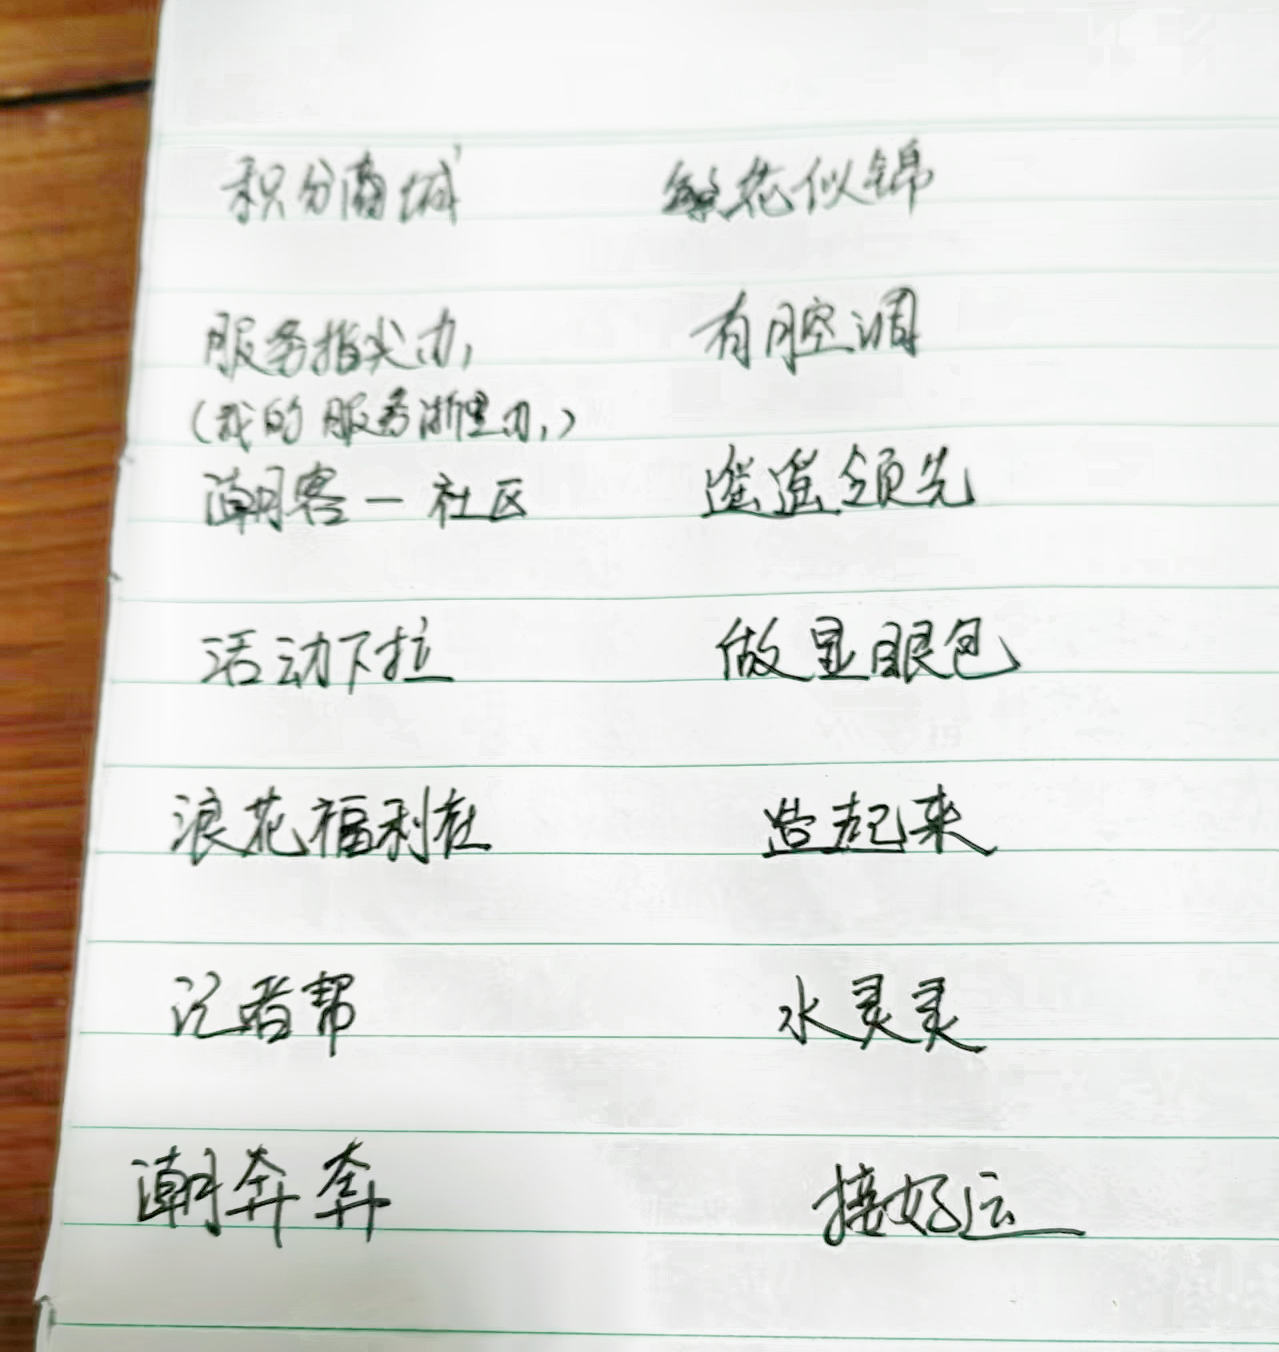 积分商城 繁花似锦
服务指尖办, 有腔调
(我的服务浙里办,)
潮客一社区 遥遥领先
活动下拉 做显眼包
浪花福利社 造起来
记者帮 水灵灵
潮奔奔 接好运